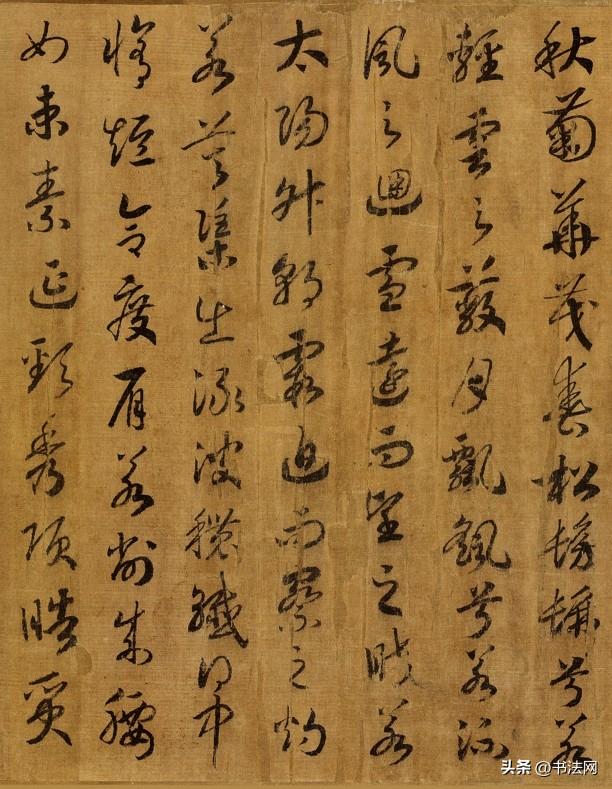 秋菊華茂春松髣髴兮若
輕雲之蔽月飄颻兮若流
風之迴雪遠而望之皎若
太陽升朝霞迫而察之灼
若芙蕖出淥波穠纖得中
脩短合度肩若削成腰
如束素延頸秀項皓質
头条 @书法网